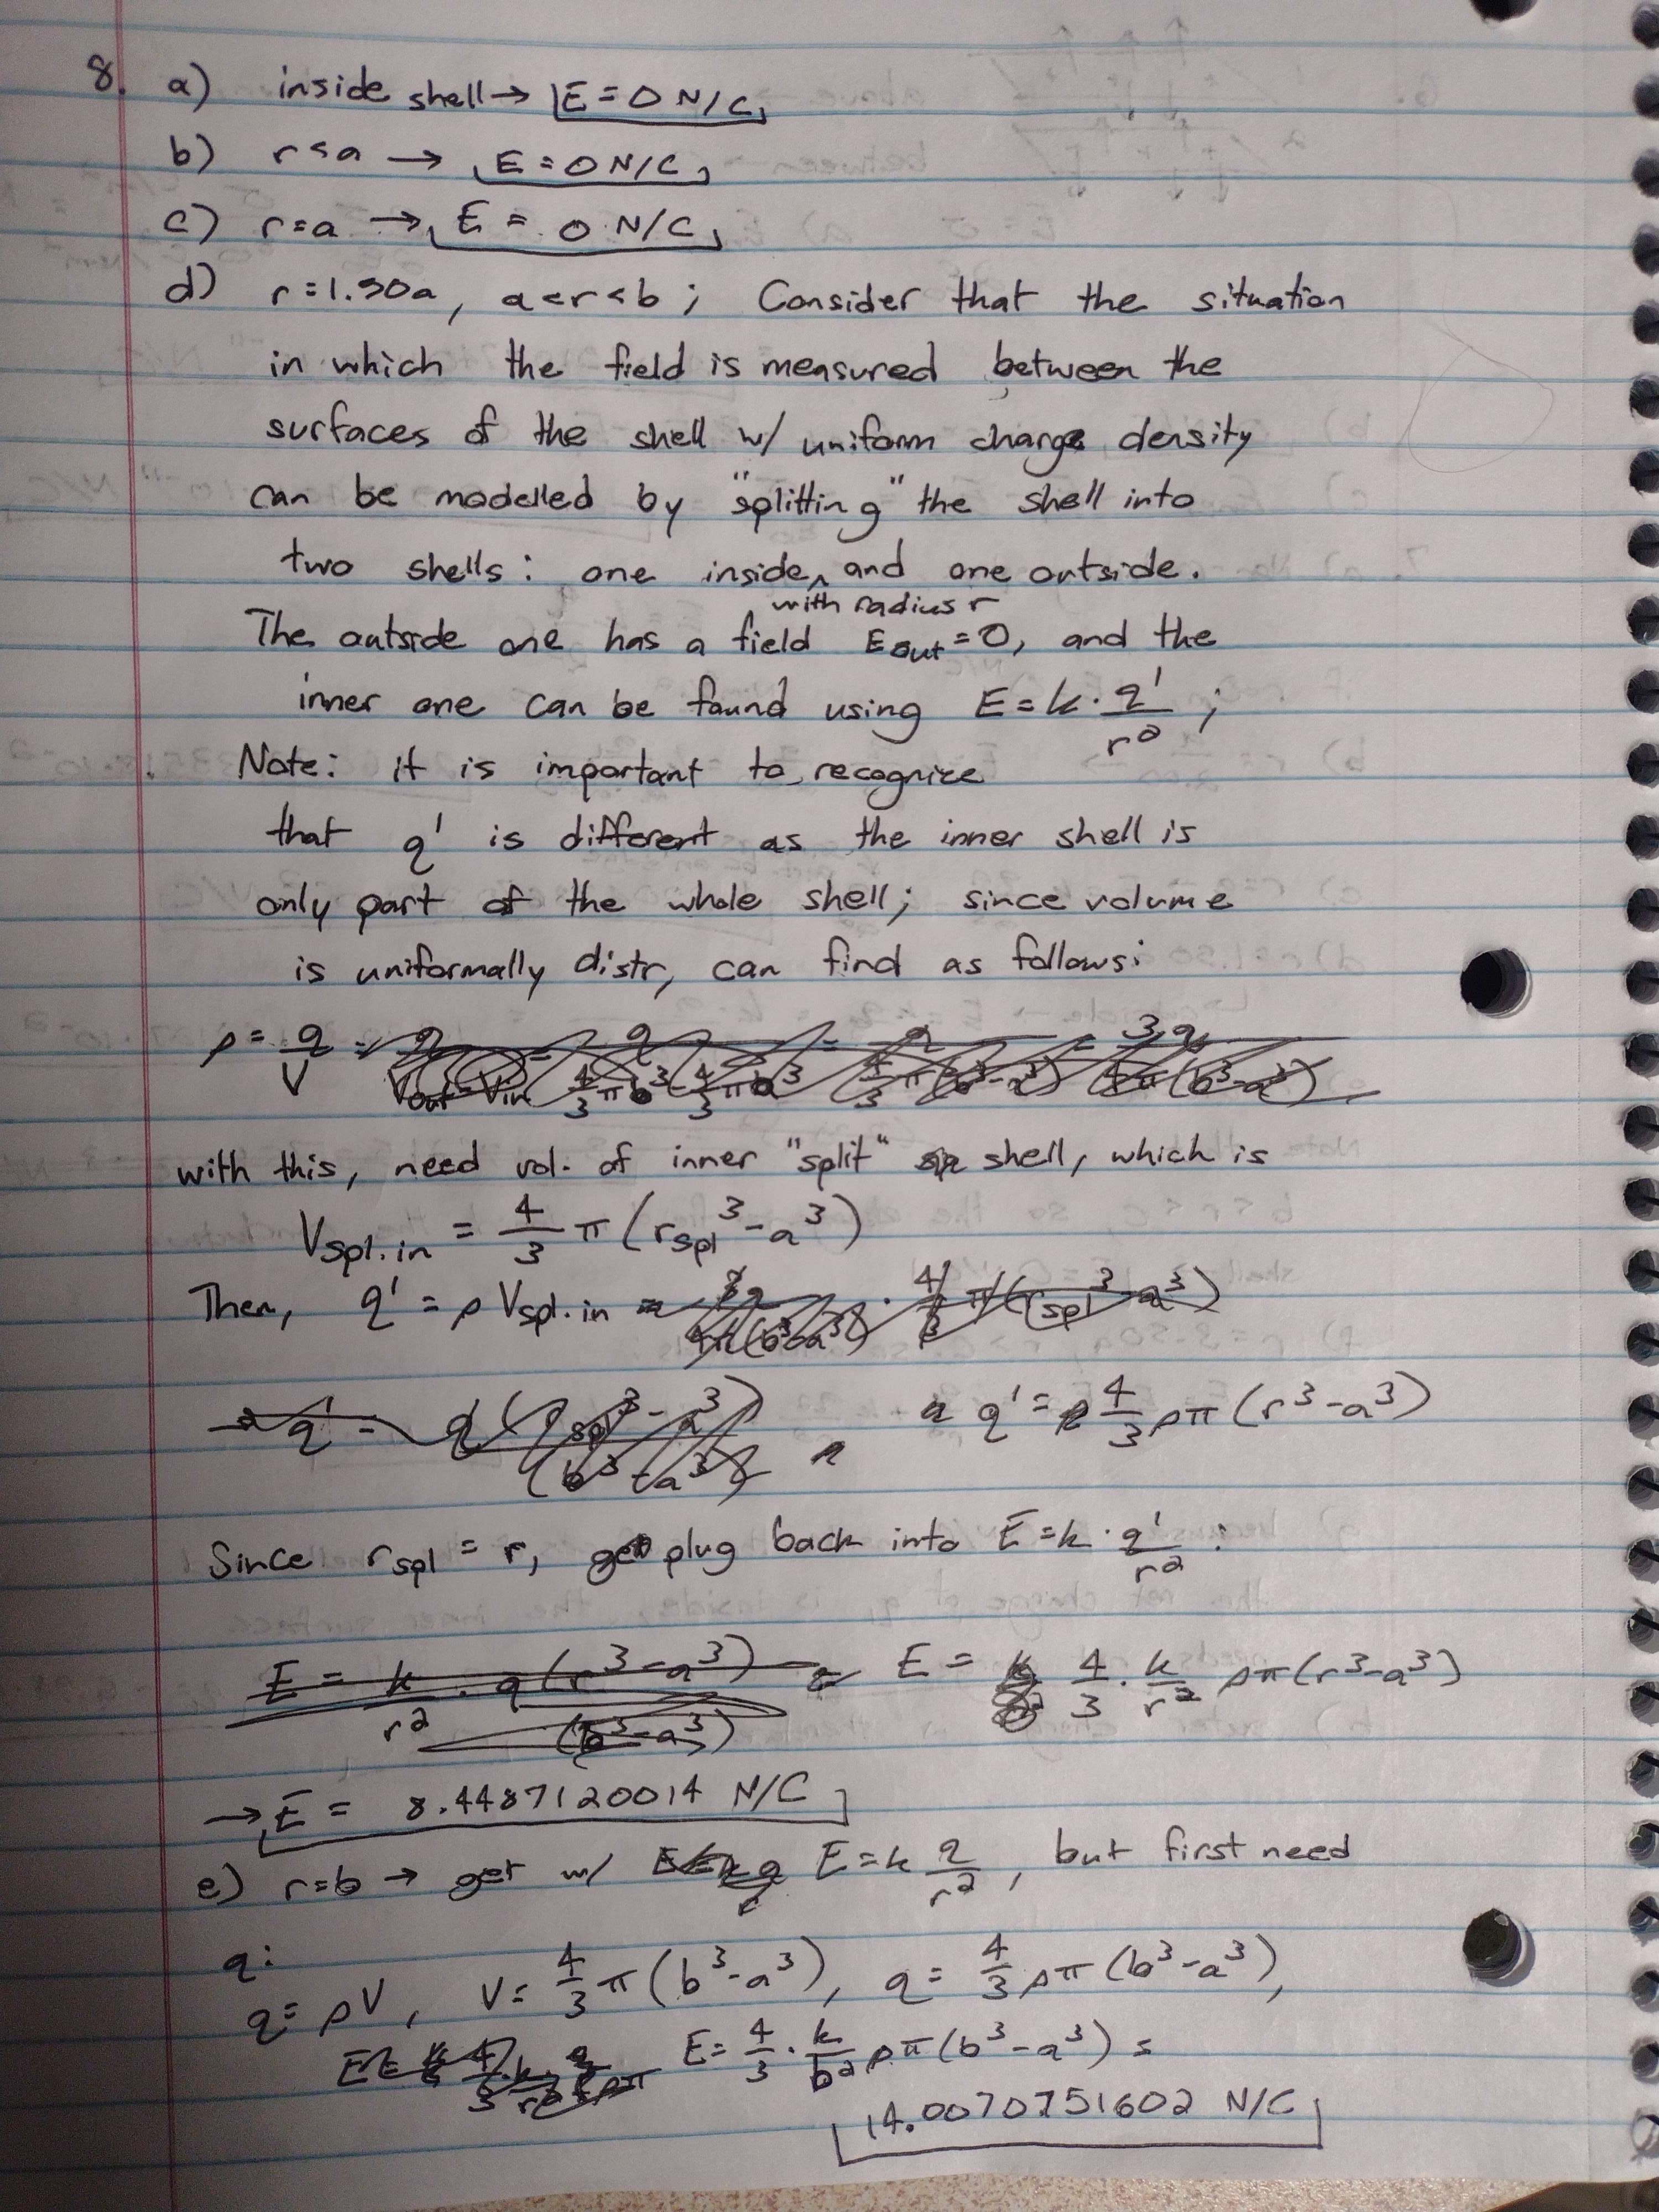 8. a) inside shell → E = 0 N/C
b) r < a → E = 0 N/C
c) r = a → E = 0 N/C
d) r = 1.50a, a < r < b ; Consider that the situation
in which the field is measured between the
surfaces of the shell w/ uniform charge density
can be modelled by "splitting" the shell into
two shells: one inside, and one outside.
with radius r
The outside one has a field E_out = 0, and the
inner one can be found using E = k · q'/r² ;
Note: it is important to recognize
that q' is different as the inner shell is
only part of the whole shell; since volume
is uniformally distr, can find as follows:
ρ = q/V
with this, need vol. of inner "split" shell, which is
V_spl.in = 4/3 π (r_spl³ - a³)
Then, q' = ρ V_spl.in
q' = 4/3 ρπ (r³ - a³)
Since r_spl = r, plug back into E = k · q'/r² :
E = 4/3 · k/r² ρπ (r³ - a³)
→ E = 8.4487120014 N/C
e) r = b → get w/ E = k q/r², but first need
q:
q = ρV, V = 4/3 π (b³ - a³), q = 4/3 ρπ (b³ - a³),
E = 4/3 · k/b² ρπ (b³ - a³) =
14.0070751602 N/C